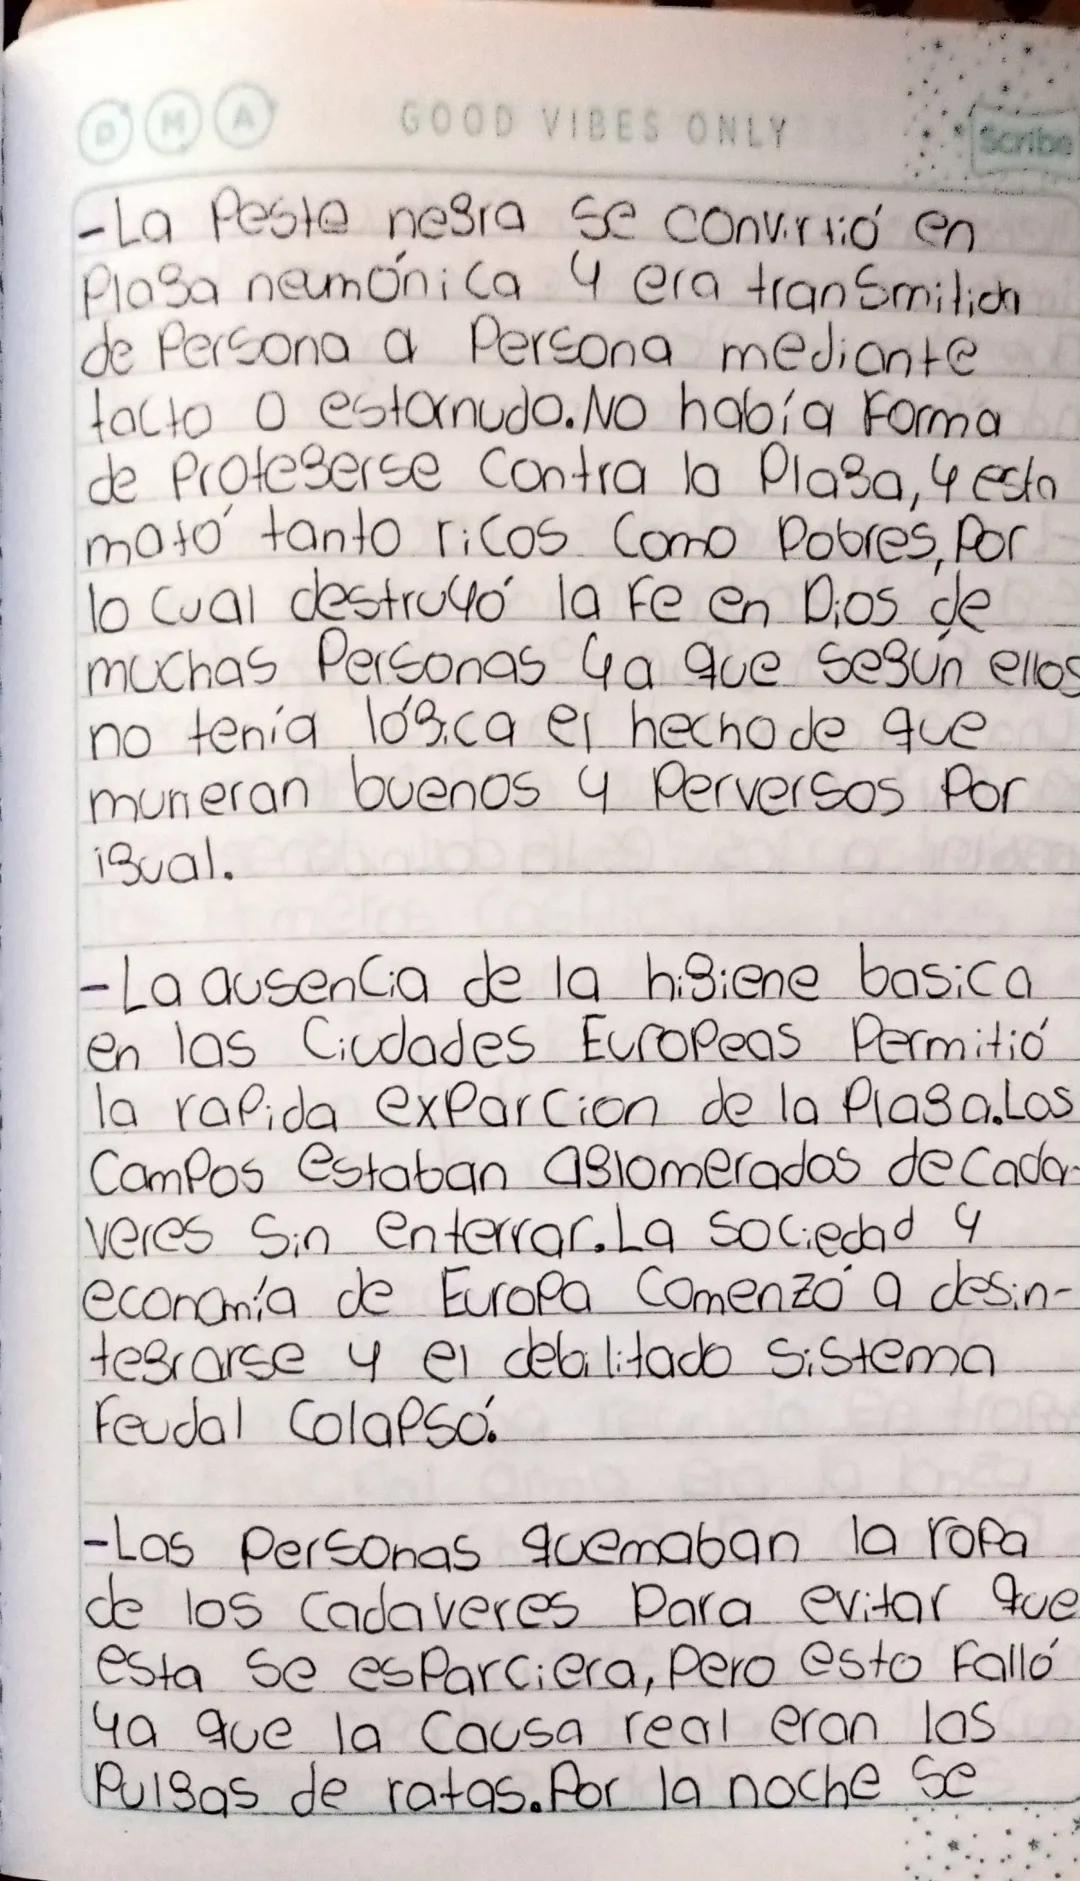 D M A
GOOD VIBES ONLY
Scribe
-La Peste negra se convirtió en
Plaga neumónica y era transmitida
de Persona a Persona mediante
tacto o estornudo. No había Forma
de Protegerse Contra la Plaga, y esta
mató tanto ricos Como Pobres, Por
lo Cual destruyó la Fe en Dios de
muchas Personas ya que según ellos
no tenía lógica el hecho de que
murieran buenos y Perversos Por
igual.
-La ausencia de la higiene basica
en las Ciudades Europeas Permitió
la rapida exparcion de la Plaga. Los
Campos estaban aglomerados de Cada-
veres Sin enterrar. La Sociedad y
economía de Europa Comenzó a desin-
tegrarse y el debilitado Sistema
Feudal Colapsó.
-Las Personas quemaban la ropa
de los Cadaveres Para evitar que
esta se esparciera, Pero esto Falló
ya que la Causa real eran las
Pulgas de ratas. Por la noche se